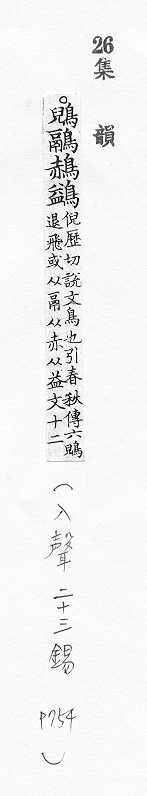 26集韻
○鶂鷊䳵鷁倪歷切說文鳥也引春秋傳六鶂
退飛或从鬲从赤从益文十二
（入聲二十三錫 P754）